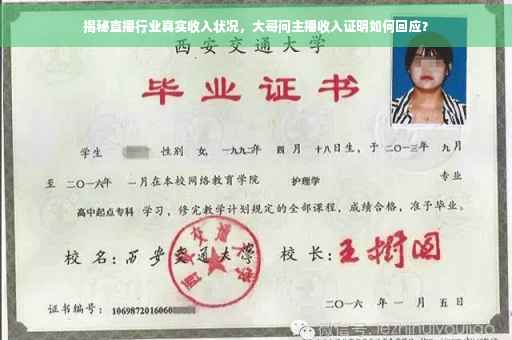 揭秘直播行业真实收入状况，大哥问主播收入证明如何回应？
西安交通大学
毕业证书
学生 性别 女，一九九二年 四月 十八日生，于二〇一三年 九月
至 二〇一六年 一月在本校网络教育学院 护理学 专业
高中起点专科 学习，修完教学计划规定的全部课程，成绩合格，准予毕业。
校 名：西安交通大学 校 长：王树国
西安交通大学
证书编号：1069872016060
二〇一六 年 一 月 五 日
微信号: jezhinuiyoujiao